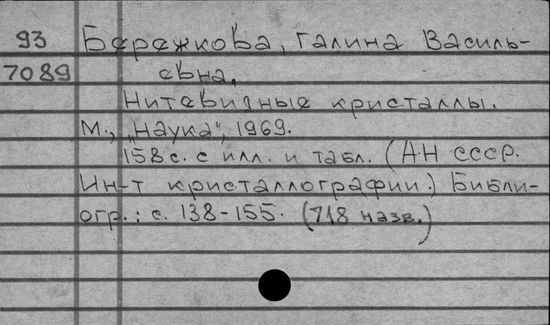 93 Бережкова, Галина Василь-
7089 евна.
Нитевидные кристаллы.
М., "Наука", 1969.
158 с. с илл. и табл. (АН СССР.
Ин-т кристаллографии.) Библи-
огр.: с. 138-155. (718 назв.)